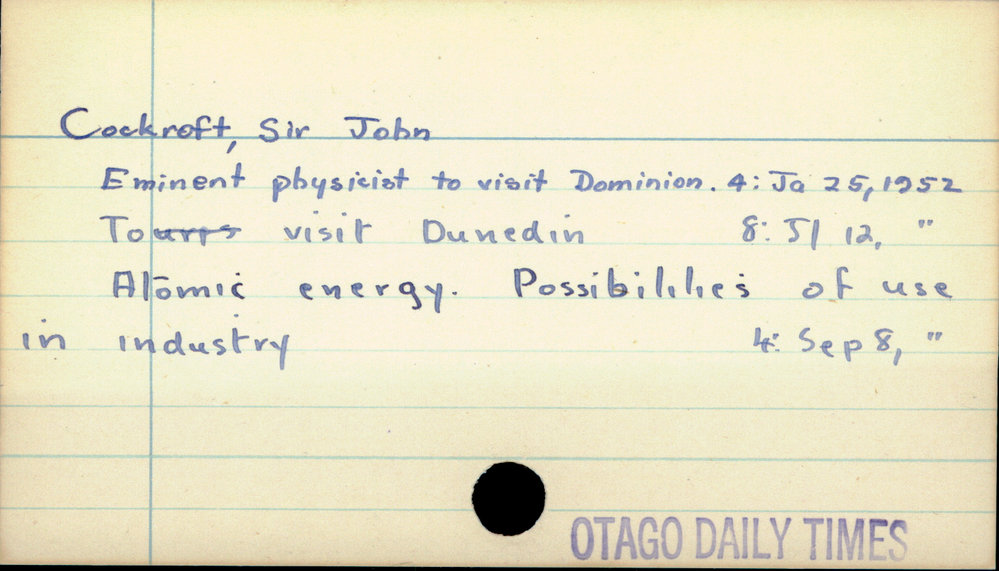 Cockroft, Sir John
Eminent physicist to visit Dominion. 4: Ja 25, 1952
To visit Dunedin 8: Jl 12, "
Atomic energy. Possibilities of use
in industry 4: Sep 8, "
OTAGO DAILY TIMES